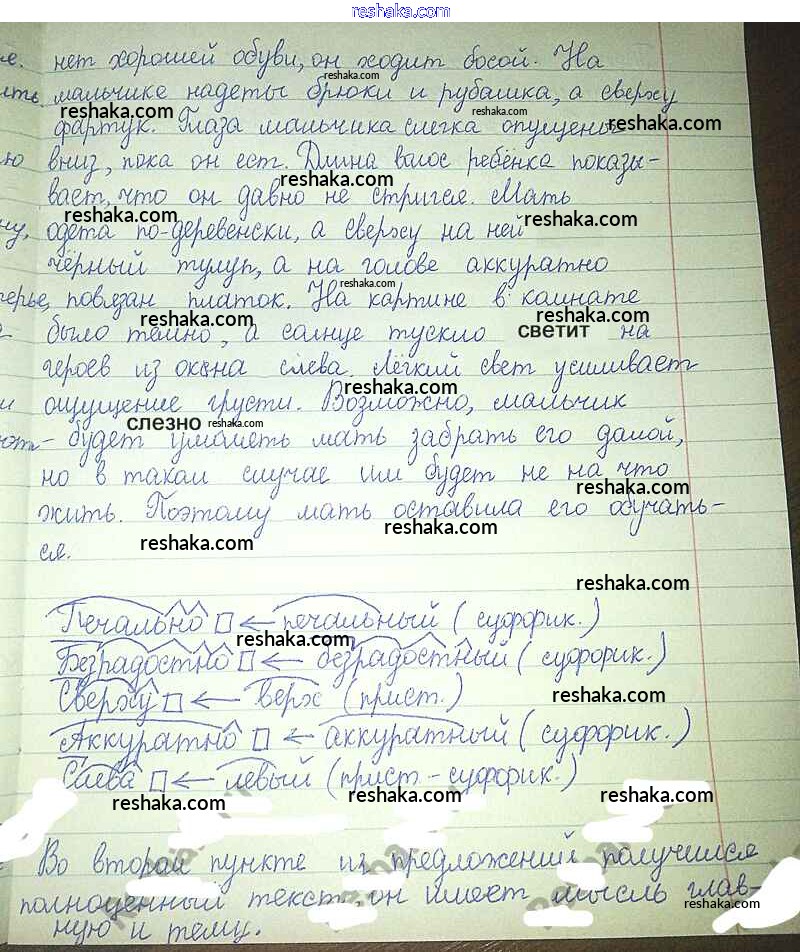 reshaka.com
е. нет хорошей обуви, он ходит босой. На
reshaka.com
ить мальчике надеты брюки и рубашка, а сверху
reshaka.com reshaka.com reshaka.com
фартук. Глаза мальчика слегка опущены
ю вниз, пока он ест. Длина волос ребёнка показы-
reshaka.com
вает, что он давно не стригся. Мать
reshaka.com reshaka.com
ну, одета по-деревенски, а сверху на ней
чёрный тулуп, а на голове аккуратно
reshaka.com
герье, повязан платок. На картине в комнате
reshaka.com reshaka.com
было темно, а солнце тускло светит на
героев из окна слева. Лёгкий свет усиливает
reshaka.com
и ощущение грусти. Возможно, мальчик
слезно reshaka.com
ют- будет умолять мать забрать его домой,
но в таком случае им будет не на что
reshaka.com
жить. Поэтому мать оставила его обучать-
reshaka.com reshaka.com
ся.
reshaka.com
Печально ← печальный (суффикс.)
reshaka.com
Безрадостно ← безрадостный (суффикс.)
Сверху ← верх (прист.)
reshaka.com
Аккуратно ← аккуратный (суффикс.)
Слева ← левый (прист-суффикс.)
reshaka.com reshaka.com reshaka.com
Во втором пункте из предложений получился
полноценный текст, он имеет мысль глав-
reshaka.com
ную и тему.